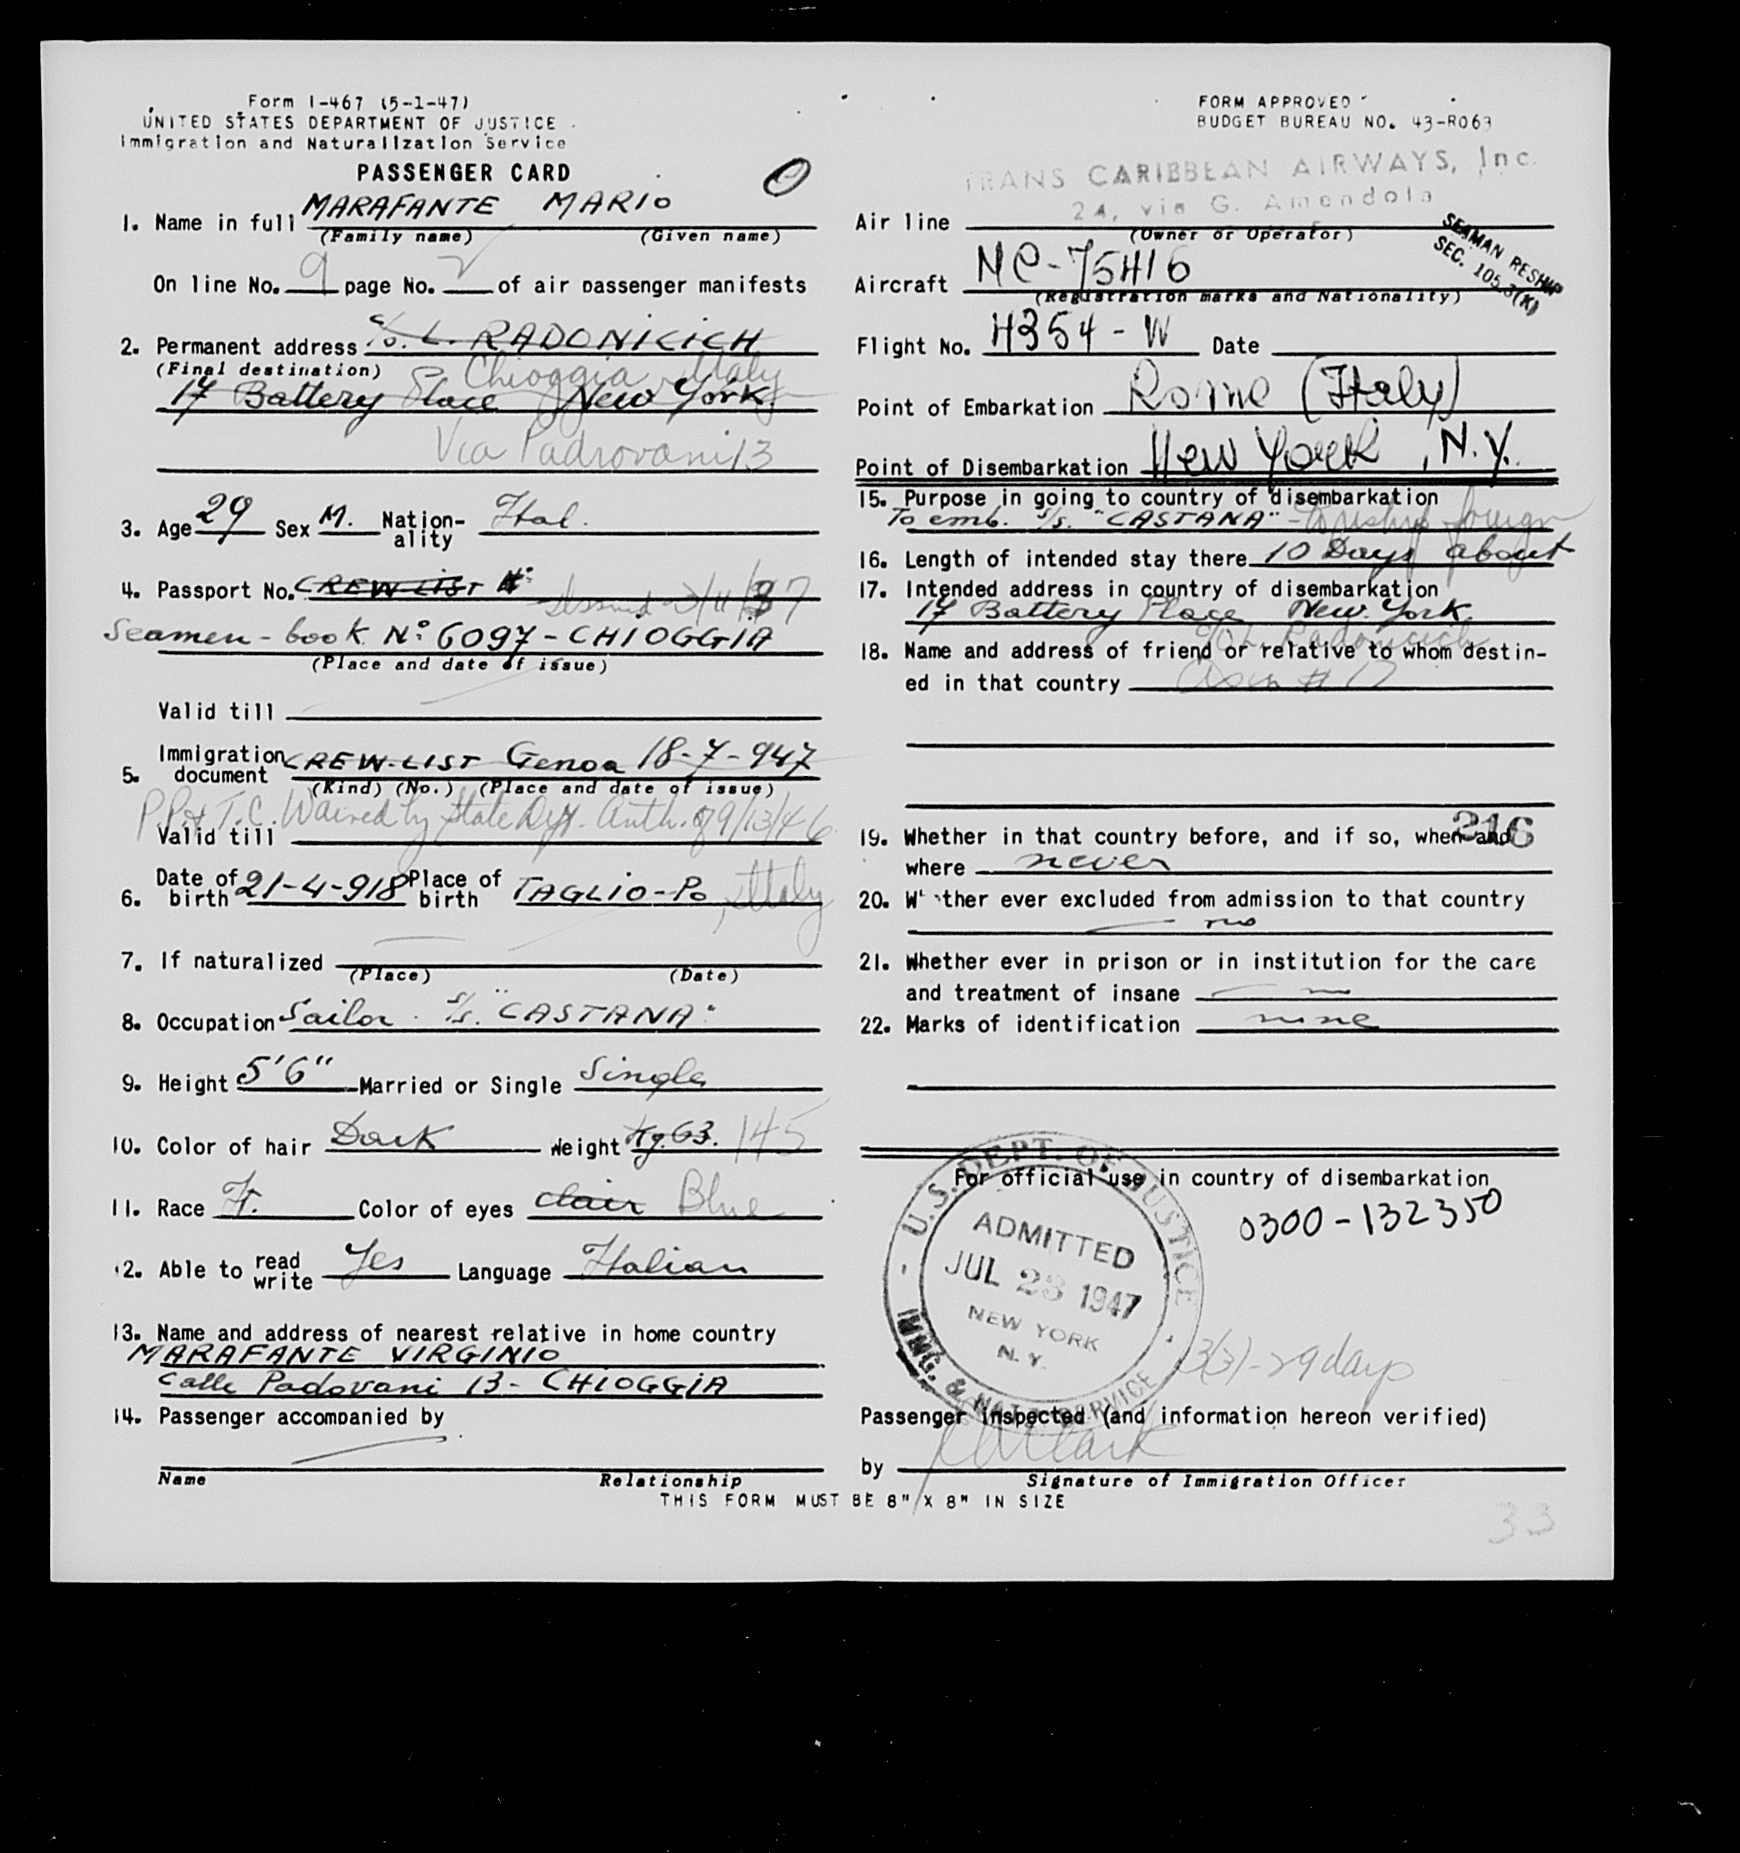 Form I-467 (5-1-47)
UNITED STATES DEPARTMENT OF JUSTICE
Immigration and Naturalization Service
PASSENGER CARD
1. Name in full MARAFANTE MARIO
(Family name) (Given name)
On line No. 9 page No. 2 of air passenger manifests
2. Permanent address c/o. L. RADONICICH
(Final destination) Chioggia Italy
17 Battery Place New York
Via Padrovani 13
3. Age 29 Sex M. Nation-ality Ital.
4. Passport No. CREW LIST N°: Issued
Seamen-book N°: 6097-CHIOGGIA
(Place and date of issue)
Valid till
5. Immigration document CREW-LIST Genoa 18-7-947
(Kind) (No.) (Place and date of issue)
P.P. & T.C. Waived by State Dept. Auth. of 9/13/46
Valid till
6. Date of birth 21-4-918 Place of birth TAGLIO-Po, Italy
7. If naturalized
(Place) (Date)
8. Occupation Sailor S/S. "CASTANA"
9. Height 5'6" Married or Single Single
10. Color of hair Dark Weight Kg. 63. 145
11. Race It. Color of eyes clair Blue
12. Able to read write Yes Language Italian
13. Name and address of nearest relative in home country
MARAFANTE VIRGINIO
Calle Padovani 13 - CHIOGGIA
14. Passenger accompanied by
Name Relationship
FORM APPROVED
BUDGET BUREAU NO. 43-R063
TRANS CARIBBEAN AIRWAYS, Inc.
24, via G. Amendola
Air line
(Owner or Operator)
SEAMAN RESHIP
SEC. 105.3(K)
Aircraft NC-75416
(Registration marks and Nationality)
Flight No. 4354-W Date
Point of Embarkation Rome (Italy)
Point of Disembarkation New York, N.Y.
15. Purpose in going to country of disembarkation
To emb. S/S. "CASTANA" - To reship foreign
16. Length of intended stay there 10 Days about
17. Intended address in country of disembarkation
17 Battery Place New York
c/o L. Radonicich
18. Name and address of friend or relative to whom destin-
ed in that country as in # 17
216
19. Whether in that country before, and if so, when and
where never
20. Whether ever excluded from admission to that country
no
21. Whether ever in prison or in institution for the care
and treatment of insane no
22. Marks of identification none
For official use in country of disembarkation
0300-132350
U.S. DEPT. OF JUSTICE
ADMITTED
JUL 28 1947
NEW YORK
N. Y.
IMMG. & NATZ. SERVICE
3(3)-29 days
Passenger inspected (and information hereon verified)
by Clark
Signature of Immigration Officer
THIS FORM MUST BE 8" X 8" IN SIZE
33